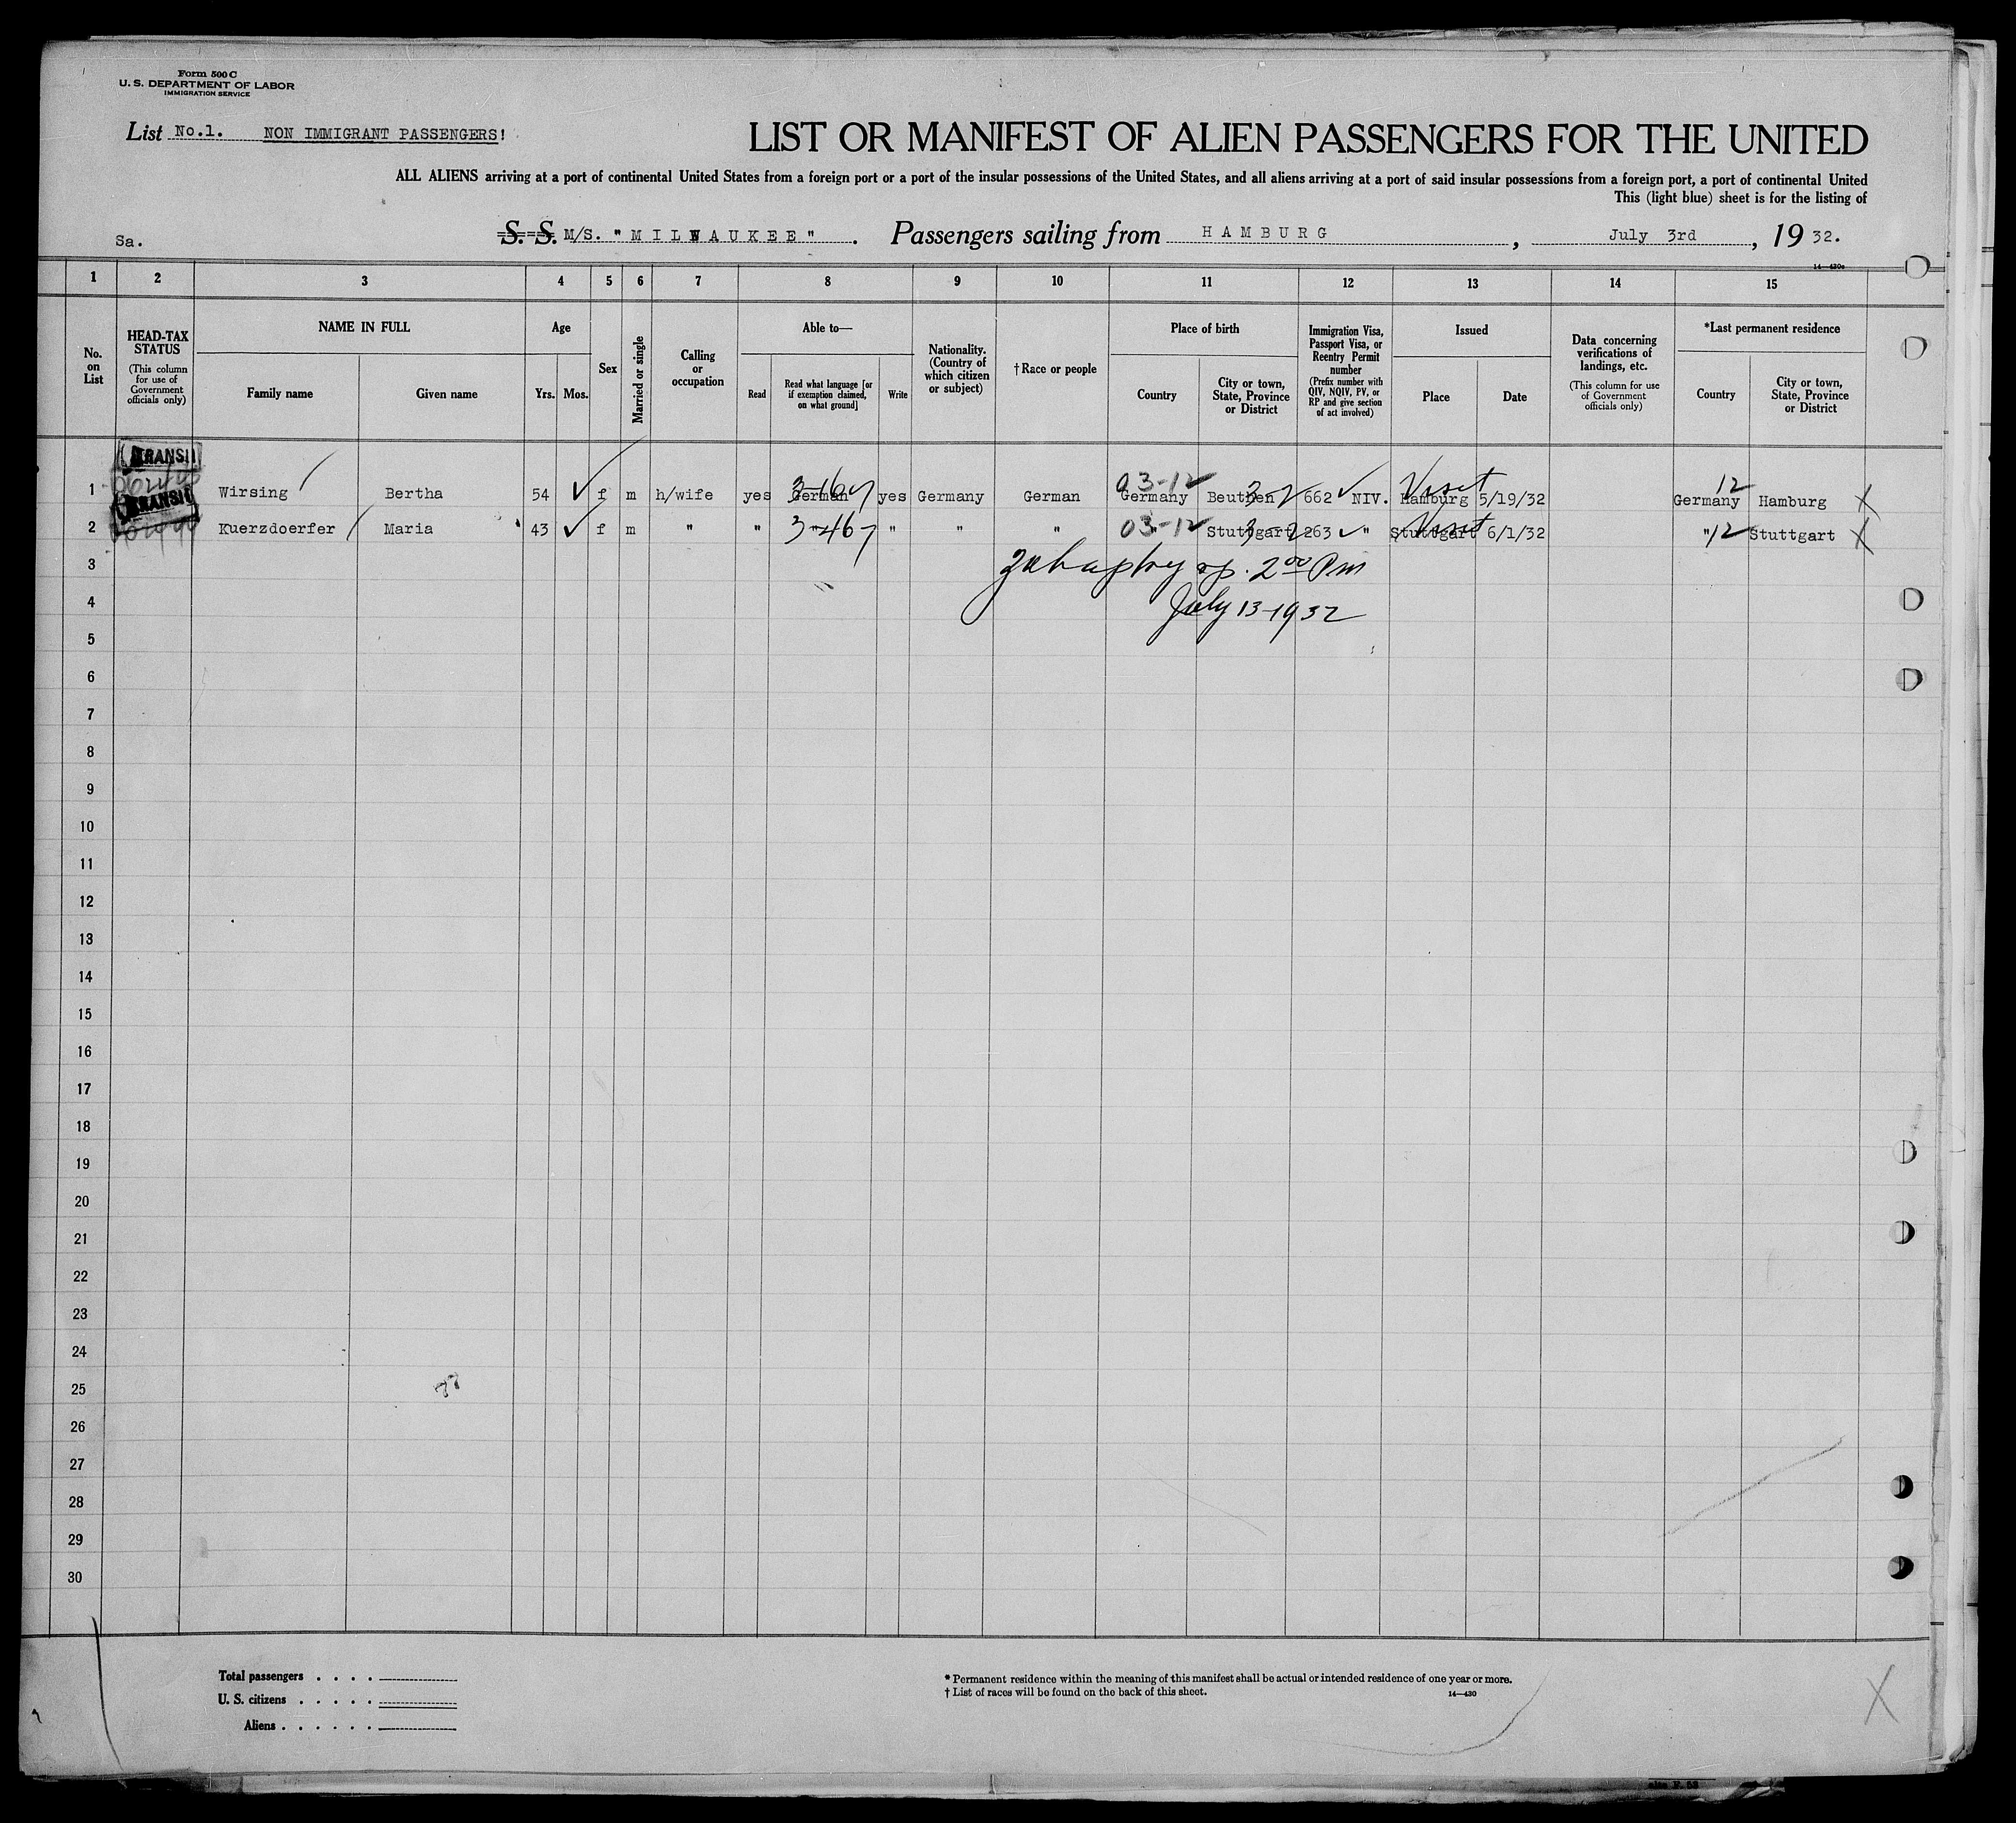 Form 500 C
U. S. DEPARTMENT OF LABOR
IMMIGRATION SERVICE
List No.1. NON IMMIGRANT PASSENGERS!
LIST OR MANIFEST OF ALIEN PASSENGERS FOR THE UNITED
ALL ALIENS arriving at a port of continental United States from a foreign port or a port of the insular possessions of the United States, and all aliens arriving at a port of said insular possessions from a foreign port, a port of continental United
This (light blue) sheet is for the listing of
Sa. S. S. M/S. "MILWAUKEE". Passengers sailing from HAMBURG, July 3rd, 19 32.
14—430a
1 2 3 4 5 6 7 8 9 10 11 12 13 14 15
No. on List
HEAD-TAX STATUS (This column for use of Government officials only)
NAME IN FULL
Family name Given name
Age
Yrs. Mos.
Sex
Married or single
Calling or occupation
Able to—
Read
Read what language [or if exemption claimed, on what ground]
Write
Nationality. (Country of which citizen or subject)
†Race or people
Place of birth
Country
City or town, State, Province or District
Immigration Visa, Passport Visa, or Reentry Permit number (Prefix number with QIV, NQIV, PV, or RP and give section of act involved)
Issued
Place Date
Data concerning verifications of landings, etc. (This column for use of Government officials only)
*Last permanent residence
Country
City or town, State, Province or District
TRANSIT
03-12 Visit 12
1 Wirsing Bertha 54 f m h/wife yes German yes Germany German Germany Beuthen 662 NIV. Hamburg 5/19/32 Germany Hamburg X
TRANSIT
2 Kuerzdoerfer Maria 43 f m " " 3-467 " " " 03-12 Stuttgart 263 " Stuttgart Visit 6/1/32 " 12 Stuttgart X
3 2 00 Pm
4 July 13-1932
5
6
7
8
9
10
11
12
13
14
15
16
17
18
19
20
21
22
23
24
25
26
27
28
29
30
Total passengers . . . .
U. S. citizens . . . . .
Aliens . . . . . .
* Permanent residence within the meaning of this manifest shall be actual or intended residence of one year or more.
† List of races will be found on the back of this sheet. 14—430
X